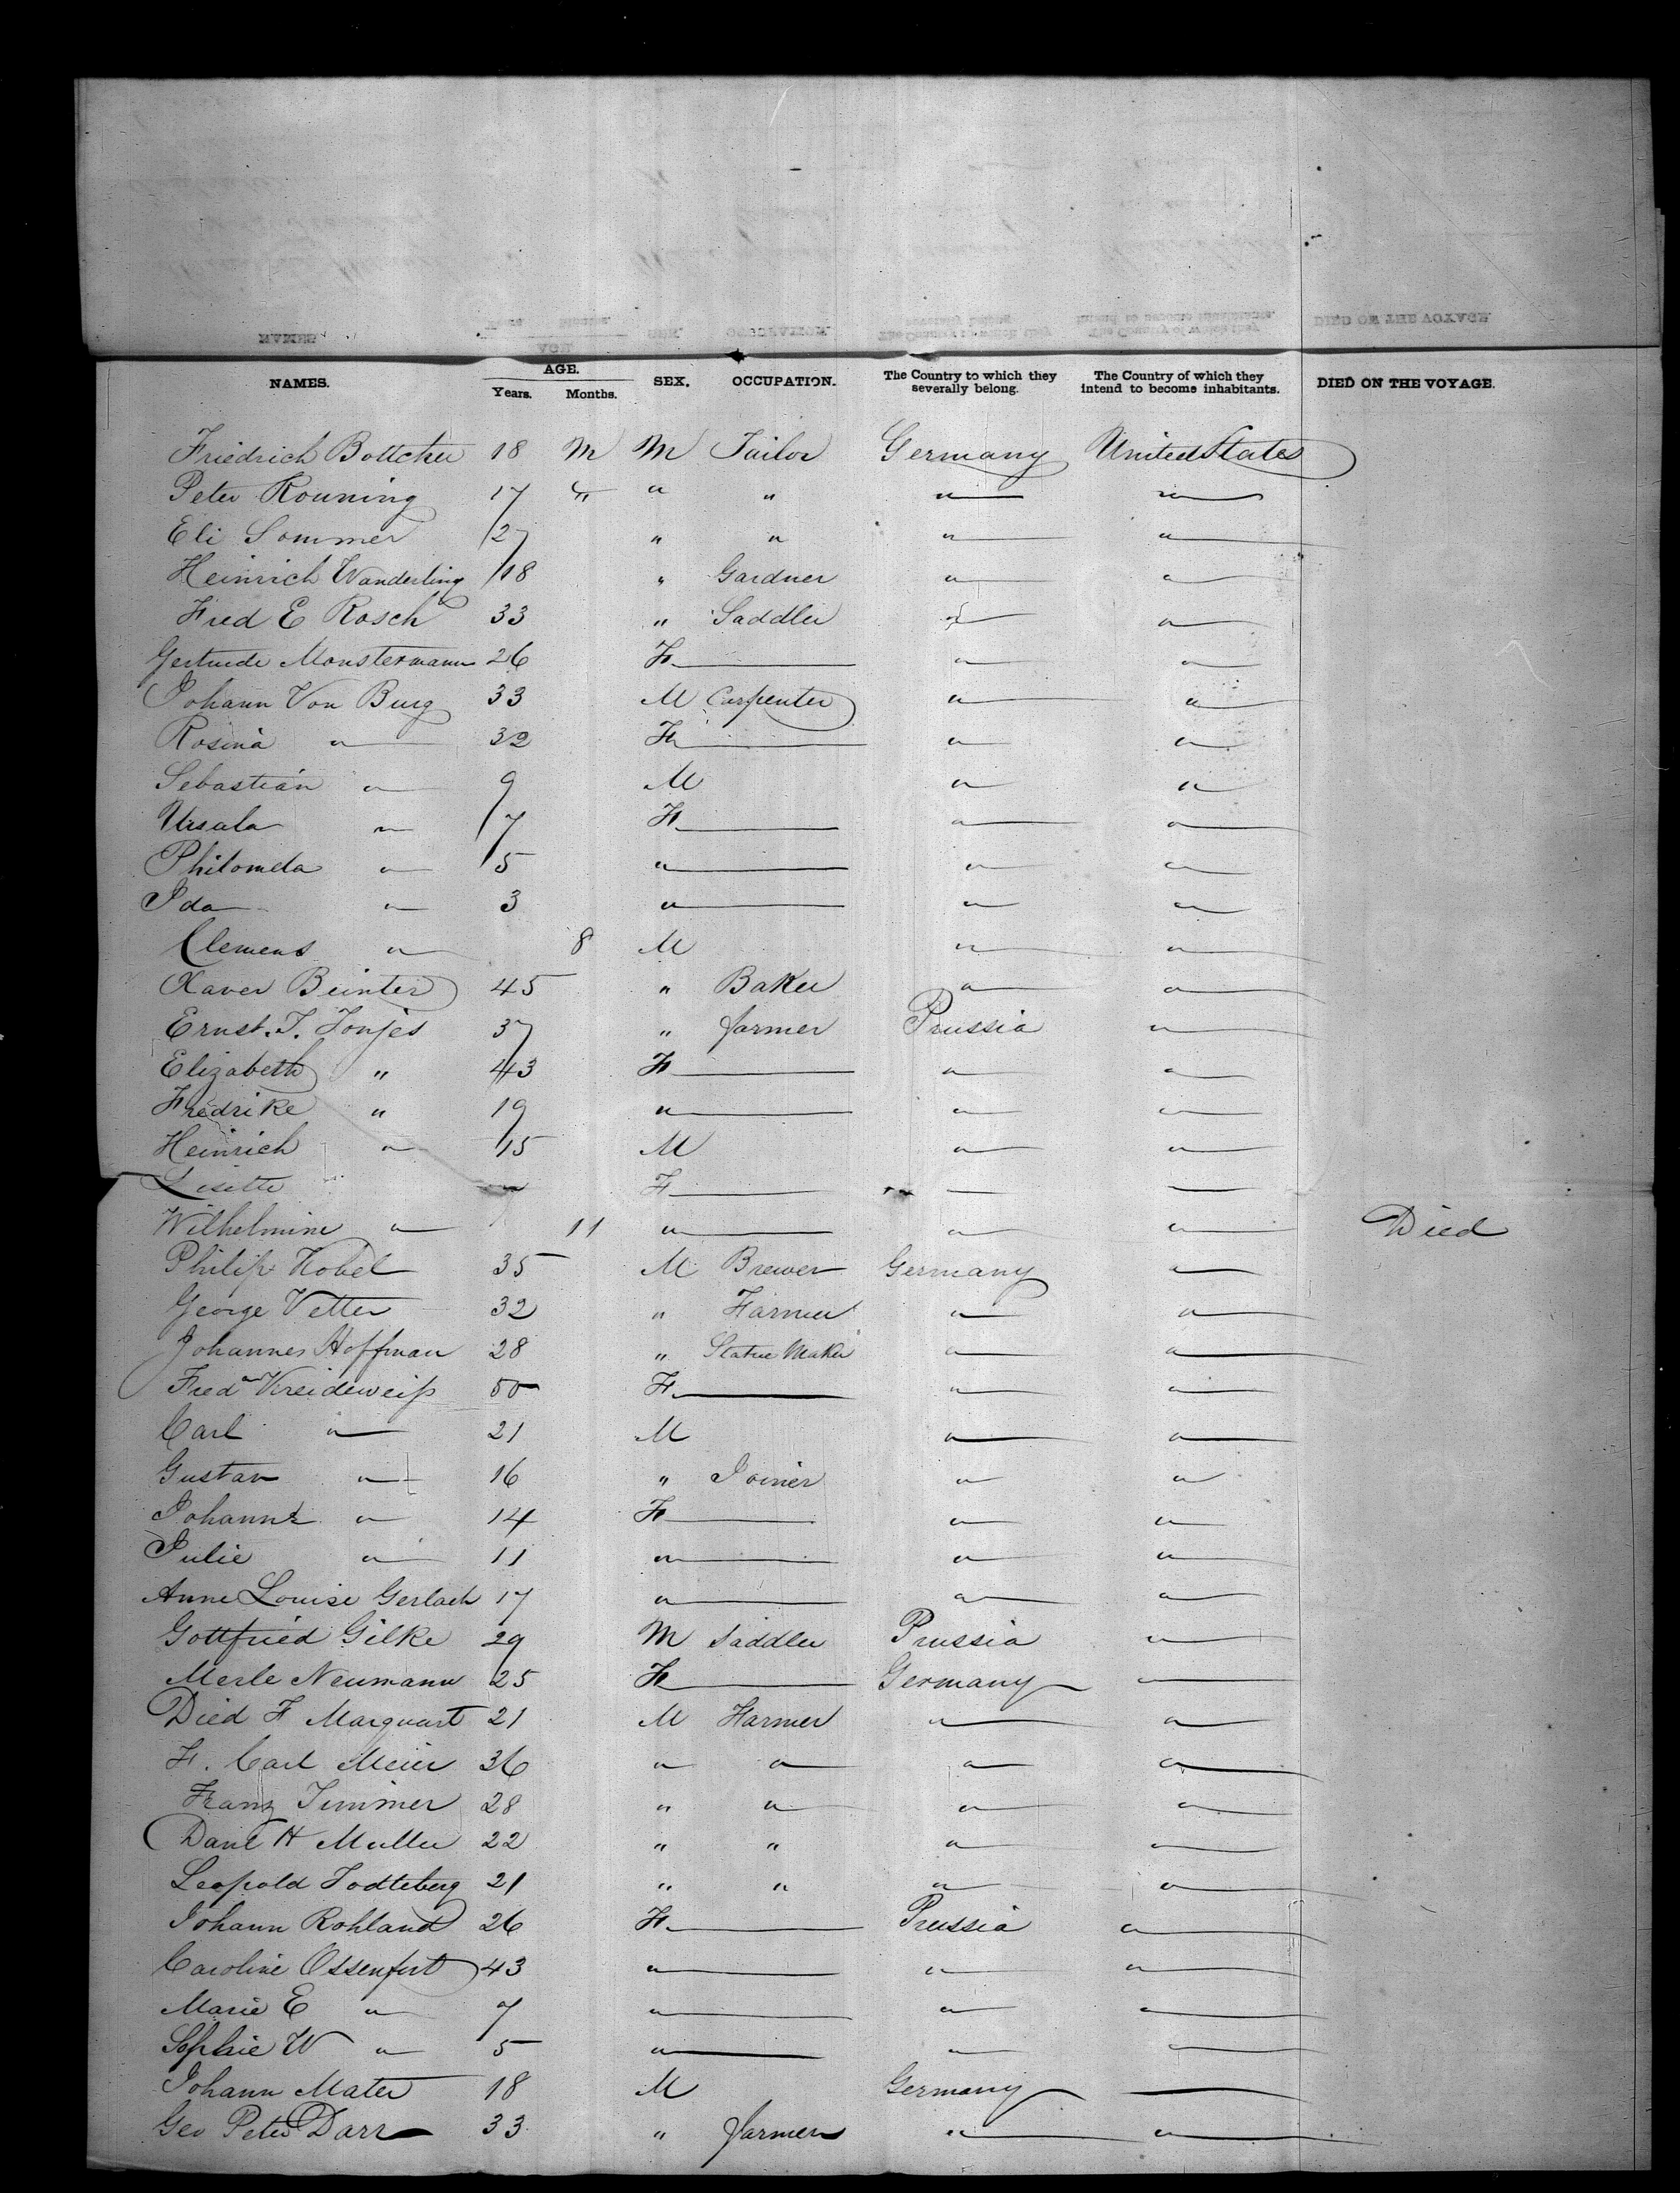 NAMES. AGE. SEX. OCCUPATION. The Country to which they severally belong. The Country of which they intend to become inhabitants. DIED ON THE VOYAGE.
Years. Months.
Friedrich Bottcher 18 M M Tailor Germany United States
Peter Rouning 17 " " " " "
Eli Sommer 27 " " " "
Heinrich Wanderling 18 " Gardner " "
Fred E Rosch 33 " Saddler " "
Gertrude Monstermann 26 F " "
Johann Von Burg 33 M Carpenter " "
Rosina " 32 F " "
Sebastian " 9 M " "
Ursala " 7 F " "
Philomela " 5 " " "
Ida " 3 " " "
Clemens " 8 M " "
Xaver Beinter 45 " Baker " "
Ernst. T. Tonjes 37 " farmer Prussia "
Elizabeth " 43 F " "
Fredrike " 19 " " "
Heinrich " 15 M " "
Lisette F
Wilhelmine " 11 " " " Died
Philip Kobel 35 M Brewer Germany "
George Vetter 32 " Farmer " "
Johannes Hoffman 28 " Statue Maker " "
Fred Kreideweiß 50 F " "
Carl " 21 M " "
Gustav " 16 " Joiner " "
Johanne " 14 F " "
Julie " 11 " " "
Anne Louise Gerlach 17 " " "
Gottfried Gilke 29 M Saddler Prussia "
Merle Neumann 25 F Germany
Died F Marquart 21 M Farmer " "
F. Carl Meier 36 " " " "
Franz Timmer 28 " " " "
Danl H Muller 22 " " " "
Leopold Todteberg 21 " " " "
Johann Rohland 26 F Prussia "
Caroline Ossenfort 43 " " "
Marie E " 7 " " "
Sophie W " 5 " " "
Johann Mater 18 M Germany
Geo Peter Darr 33 " farmer " "